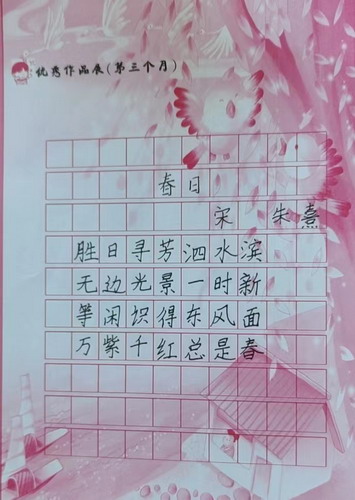 优秀作品展(第三个月)
春日
宋 朱熹
胜日寻芳泗水滨
无边光景一时新
等闲识得东风面
万紫千红总是春